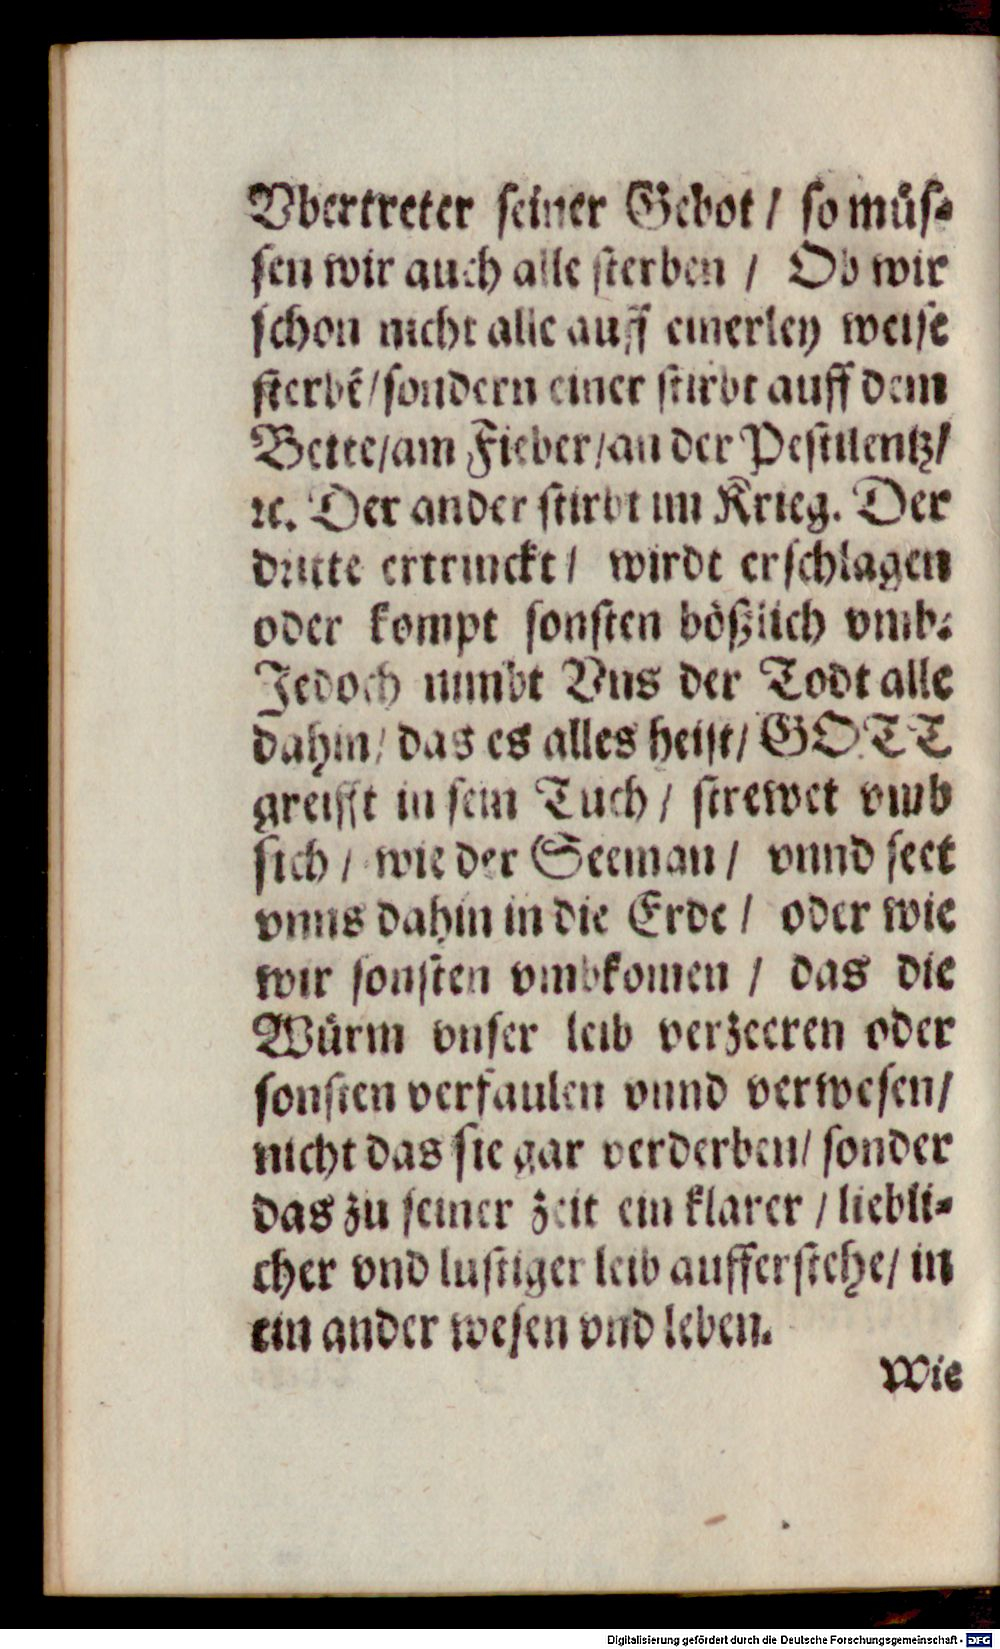 Vbertreter seiner Gebot / so müs⸗
sen wir auch alle sterben / Ob wir
schon nicht alle auff einerley weise
sterbē / sondern einer stirbt auff dem
Bette / am Fieber / an der Pestilentz /
ꝛc. Der ander stirbt im Krieg. Der
dritte ertrinckt / wirdt erschlagen
oder kompt sonsten bößlich vmb:
Jedoch nimbt Vns der Todt alle
dahin / das es alles heist / GOTT
greifft in sein Tuch / strewet vmb
sich / wie der Seeman / vnnd seet
vnns dahin in die Erde / oder wie
wir sonsten vmbkomen / das die
Würm vnser leib verzeeren oder
sonsten verfaulen vnnd verwesen /
nicht das sie gar verderben / sonder
das zu seiner zeit ein klarer / liebli⸗
cher vnd lustiger leib aufferstehe / in
ein ander wesen vnd leben.
Wie
Digitalisierung gefördert durch die Deutsche Forschungsgemeinschaft - DFG